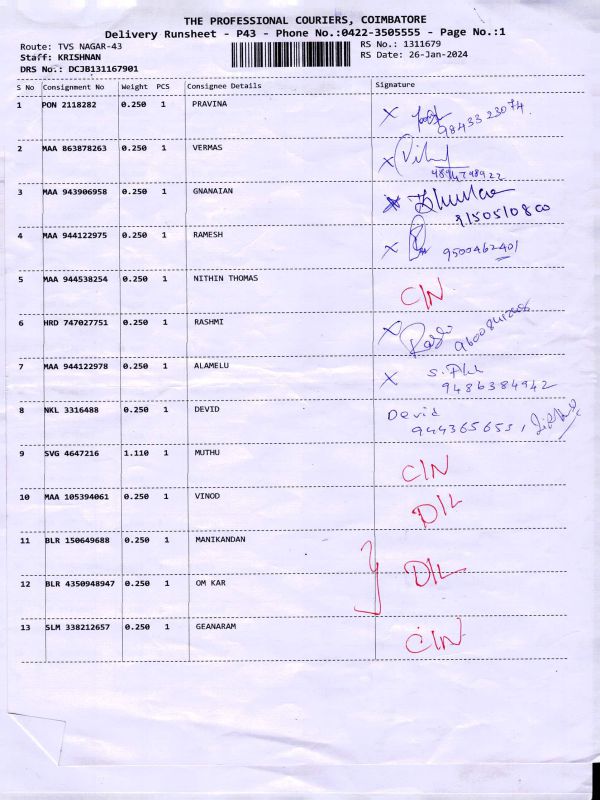 THE PROFESSIONAL COURIERS, COIMBATORE
Delivery Runsheet - P43 - Phone No.:0422-3505555 - Page No.:1
Route: TVS NAGAR-43 RS No.: 1311679
Staff: KRISHNAN RS Date: 26-Jan-2024
DRS No.: DCJB131167901
S No Consignment No Weight PCS Consignee Details Signature
1 PON 2118282 0.250 1 PRAVINA X
98433 23074
2 MAA 863878263 0.250 1 VERMAS X
3 MAA 943906958 0.250 1 GNANAIAN
9150510800
4 MAA 944122975 0.250 1 RAMESH X 9500462401
5 MAA 944538254 0.250 1 NITHIN THOMAS C/N
6 HRD 747027751 0.250 1 RASHMI X
7 MAA 944122978 0.250 1 ALAMELU X
9486384942
8 NKL 3316488 0.250 1 DEVID Devid
944365655,
9 SVG 4647216 1.110 1 MUTHU C/N
10 MAA 105394061 0.250 1 VINOD D/L
11 BLR 150649688 0.250 1 MANIKANDAN
D/L
12 BLR 4350948947 0.250 1 OM KAR
13 SLM 338212657 0.250 1 GEANARAM C/N